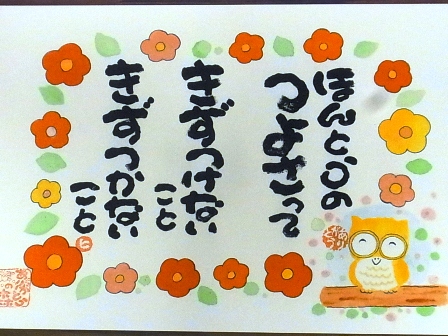 ほんとうの
つよさって
きずつけない
こと
きずつかない
こと